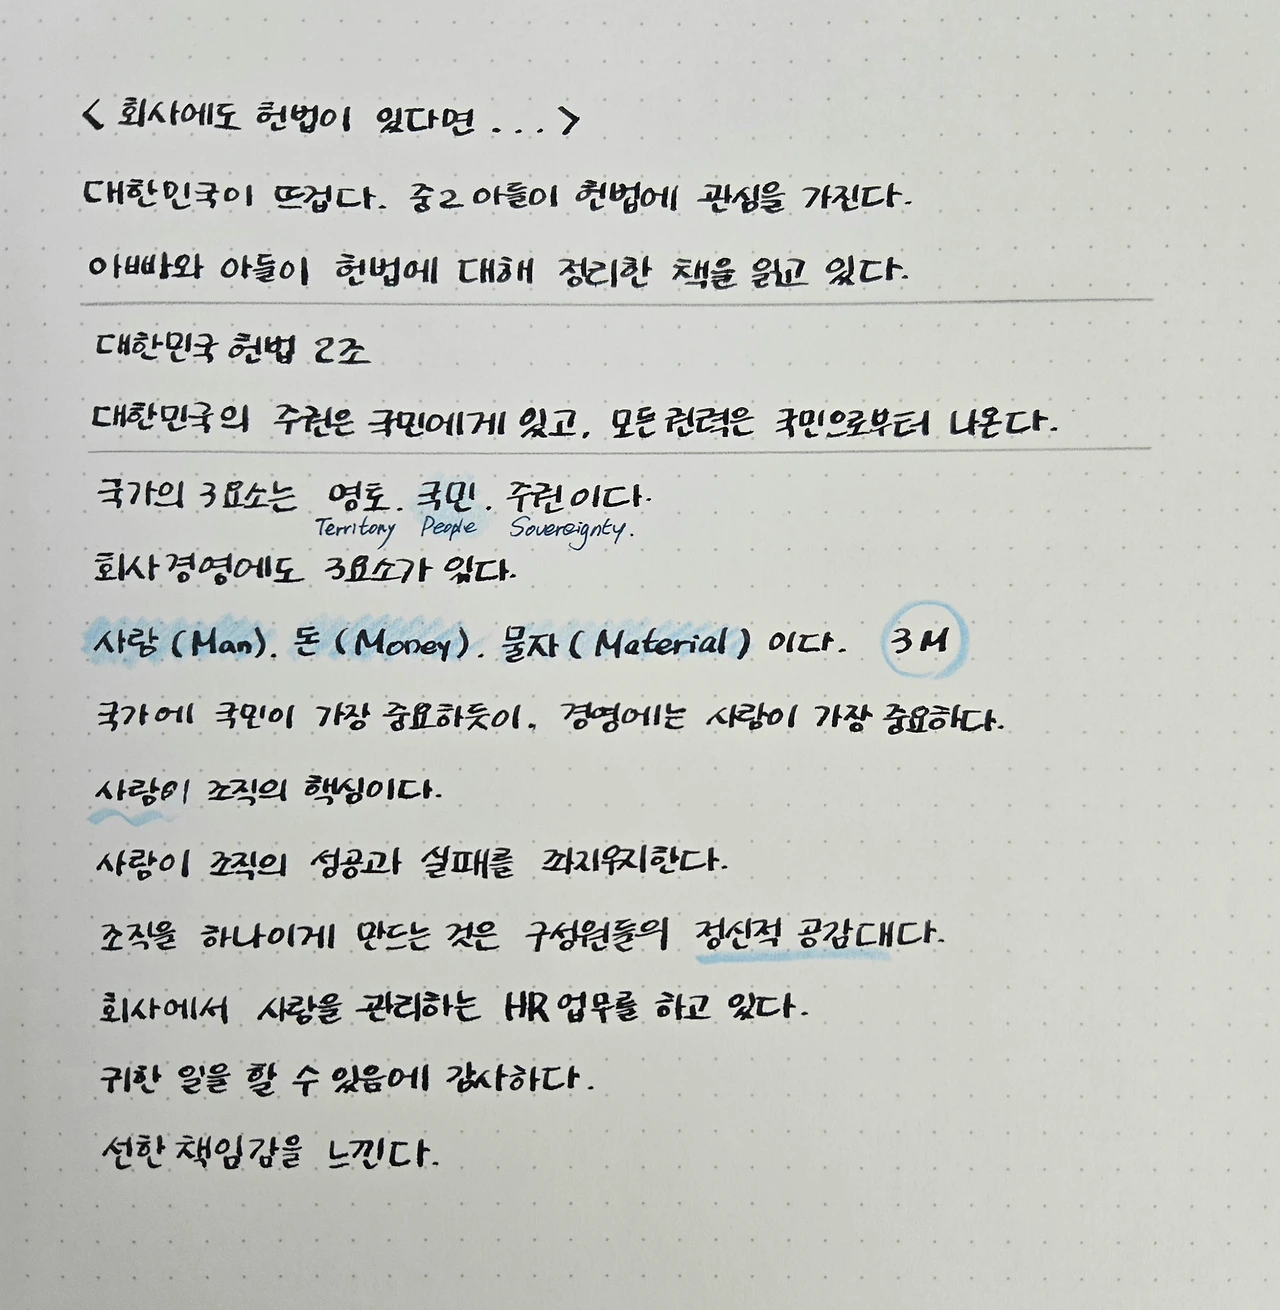 < 회사에도 헌법이 있다면 ... >
대한민국이 뜨겁다. 중2 아들이 헌법에 관심을 가진다.
아빠와 아들이 헌법에 대해 정리한 책을 읽고 있다.
대한민국 헌법 2조
대한민국의 주권은 국민에게 있고, 모든 권력은 국민으로부터 나온다.
국가의 3요소는 영토. 국민. 주권이다.
Territory People Sovereignty.
회사 경영에도 3요소가 있다.
사람 (Man). 돈 (Money). 물자 (Material) 이다. 3M
국가에 국민이 가장 중요하듯이, 경영에는 사람이 가장 중요하다.
사람이 조직의 핵심이다.
사람이 조직의 성공과 실패를 좌지우지한다.
조직을 하나이게 만드는 것은 구성원들의 정신적 공감대다.
회사에서 사람을 관리하는 HR 업무를 하고 있다.
귀한 일을 할 수 있음에 감사하다.
선한 책임감을 느낀다.